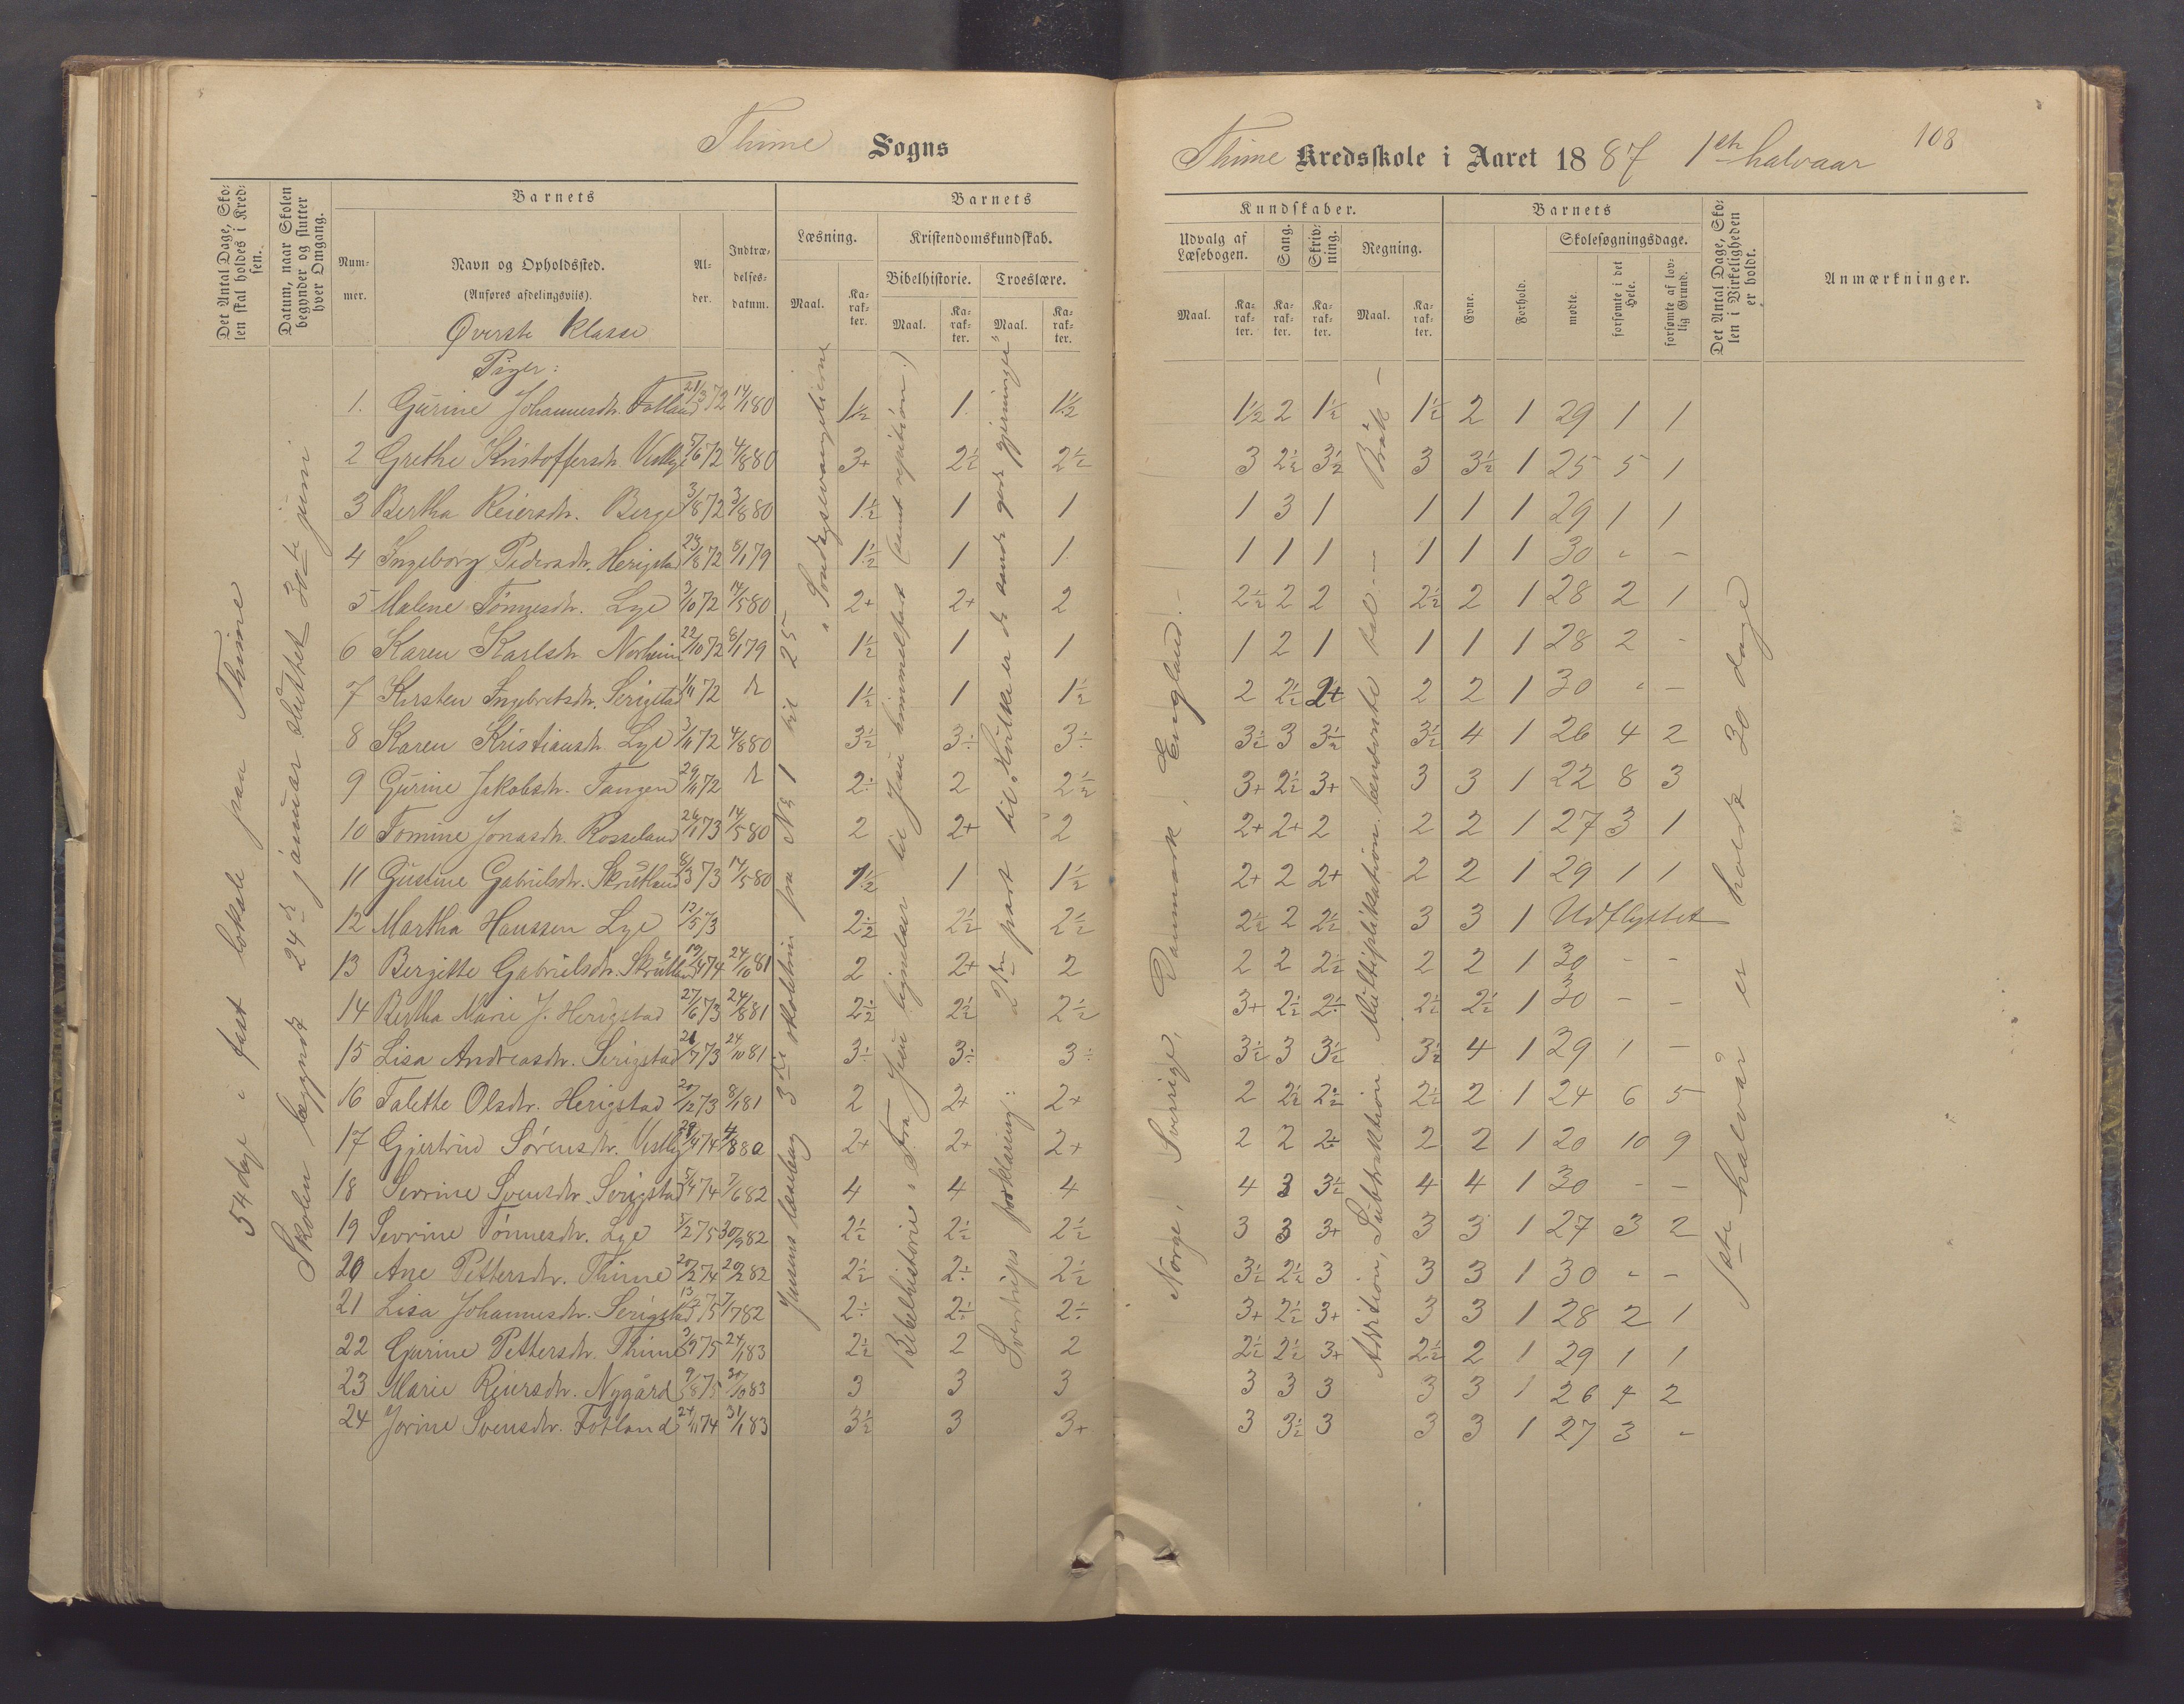 Thime Sogns
Thime Kredsskole i Aaret 1887 1ste halvaar 108
Det Antal Dage, Skolen skal holdes i Kredsen.
Datum, naar Skolen begynder og slutter hver Omgang.
Barnets
Nummer.
Navn og Opholdssted.
(Anføres afdelingsviis).
Alder.
Indtrædelsesdatum.
Barnets
Læsning.
Kristendomskundskab.
Bibelhistorie. Troeslære.
Maal. Karakter. Maal. Karakter. Maal. Karakter.
Kundskaber.
Udvalg af Læsebogen. Sang. Skrivning. Regning.
Maal. Karakter. Karakter. Karakter. Maal. Karakter.
Barnets
Evne. Forhold.
Skolesøgningsdage.
mødte. forsømte i det Hele. forsømte af lovlig Grund.
Det Antal Dage, Skolen i Virkeligheden er holdt.
Anmærkninger.
54 dage i fast lokale paa Thime
Skolen begyndt 24de januar sluttet 30te juni.
Jensens læsebog 3die skoletrin fra No 1 til 25
"Søndagsevangelierne
Bibelhistorie: Fra Jesu lignelser til Jesu himmelfart (samt repition.)
Sverdrups forklaring: 2den part til "Hvilke er de sande gode gjerninger"
Norge, Sverrige, Danmark, England.
Addition, Subtraktion Multiplikation benævnte tal — Brøk —
1ste halvår er holdt 30 dage
Øverste Klasse
Piger:
1. Gurine Johannesdtr. Fotland 21/3 72 14/1 80 1½ 1 1½ 1½ 2 1½ 1½ 2 1 29 1 1
2 Grethe Kristoffersdtr. Vestlye 5/6 72 4/8 80 3+ 2½ 2½ 3 2½ 3½ 3 3½ 1 25 5 1
3 Bertha Reiersdtr. Berge 3/8 72 3/8 80 1½ 1 1 1 3 1 1 1 1 29 1 1
4 Ingeborg Pedersdtr. Herigstad 23/8 72 8/1 79 1½ 1 1 1 1 1 1 1 1 30 - -
5 Malene Tönnesdtr. Lye 3/10 72 14/5 80 2+ 2+ 2 2½ 2 2 2½ 2 1 28 2 1
6 Karen Karlsdtr. Norheim 22/10 72 8/1 79 1½ 1 1 1 2 1 1 1 1 28 2 -
7 Kirsten Ingebretsdtr. Serigstad 1/11 72 1½ 1 1½ 2 2½ 2+ 2 2 1 30 - -
8 Karen Kristiansdtr. Lye 3/11 72 4/8 80 3½ 3÷ 3÷ 3½ 3 3½ 3½ 4 1 26 4 2
9 Gurine Jakobsdtr. Tangen 29/11 72 2÷ 2 2½ 3+ 2½ 3+ 3 3 1 22 8 3
10 Tomine Jonasdtr. Rosseland 26/1 73 14/5 80 2 2+ 2 2+ 2+ 2 2 2 1 27 3 1
11 Gustine Gabrielsdtr. Skrutland 8/3 73 14/5 80 1½ 1 1½ 2+ 2 2+ 2 2 1 29 1 1
12 Martha Hanssen Lye 12/5 73 2½ 2½ 2½ 2½ 2 2½ 3 3 1 Udflyttet
13 Bergitte Gabrielsdtr. Skrutland 19/4 74 24/10 81 2 2+ 2 2 2 2½ 2 2 1 30 - -
14 Bertha Marie J. Herigstad 27/6 73 24/8 81 2½ 2½ 2½ 3+ 2½ 2÷ 2½ 2½ 1 30 - -
15 Lisa Andreasdtr. Serigstad 21/7 73 24/10 81 3÷ 3÷ 3÷ 3½ 3 3½ 3½ 4 1 29 1 -
16 Talette Olsdtr. Herigstad 20/12 73 8/1 81 2 2+ 2+ 2 2½ 2½ 2½ 2 1 24 6 5
17 Gjertrud Sörensdtr. Vestly 29/4 74 4/8 80 2+ 2+ 2+ 2 2 2+ 2 2 1 20 10 9
18 Serrine Svensdtr. Serigstad 5/4 74 7/6 82 4 4 4 4 3 3½ 4 4 1 30 - -
19 Sevrine Tönnesdtr. Lye 5/2 75 30/9 82 2½ 2½ 2½ 3 3 3+ 3 3 1 27 3 2
20 Ane Pettersdtr. Thime 20/2 74 20/2 82 2½ 2÷ 2½ 3½ 2½ 3 3 3 1 30 - -
21 Lisa Johannesdtr. Serigstad 7/7 82 2÷ 2÷ 2÷ 3+ 2½ 3+ 3 3 1 28 2 1
22 Gurine Pettersdtr. Thime 3/9 75 24/1 83 2½ 2 2 2½ 2½ 3+ 2½ 2 1 29 1 1
23 Marie Reiersdtr. Nygård 9/8 75 3 3 3 3 3 3 3 3 1 26 4 2
24 Jorine Svensdtr. Fotland 24/11 74 31/1 83 3½ 3 3+ 3 3½ 3 3 3 1 27 3 -